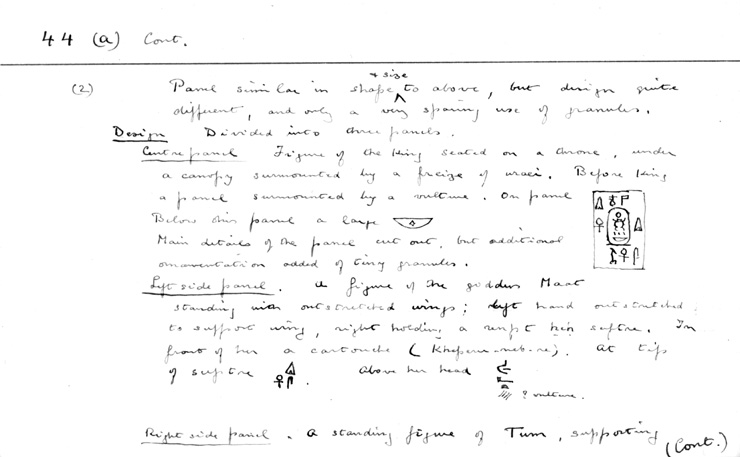 44 (a) Cont.
(2) Panel similar in shape + size to above, but design quite
different, and only a very sparing use of granules.
Design Divided into three panels.
Centre panel Figure of the King seated on a throne, under
a canopy surmounted by a frieze of uraei. Before King
a panel surmounted by a vulture. On panel
Below this panel a large
Main details of the panel cut out, but additional
ornamentation added of tiny granules.
Left side panel. A figure of the goddess Maat
standing with outstretched wings; left hand outstretched
to support wing, right holding a renpt sceptre. In
front of her a cartouche (Kheperu-neb-re). At top
of sceptre 𓏙 𓋹 𓋴. Above her head
? vulture.
Right side panel. A standing figure of Tum, supporting
(Cont.)